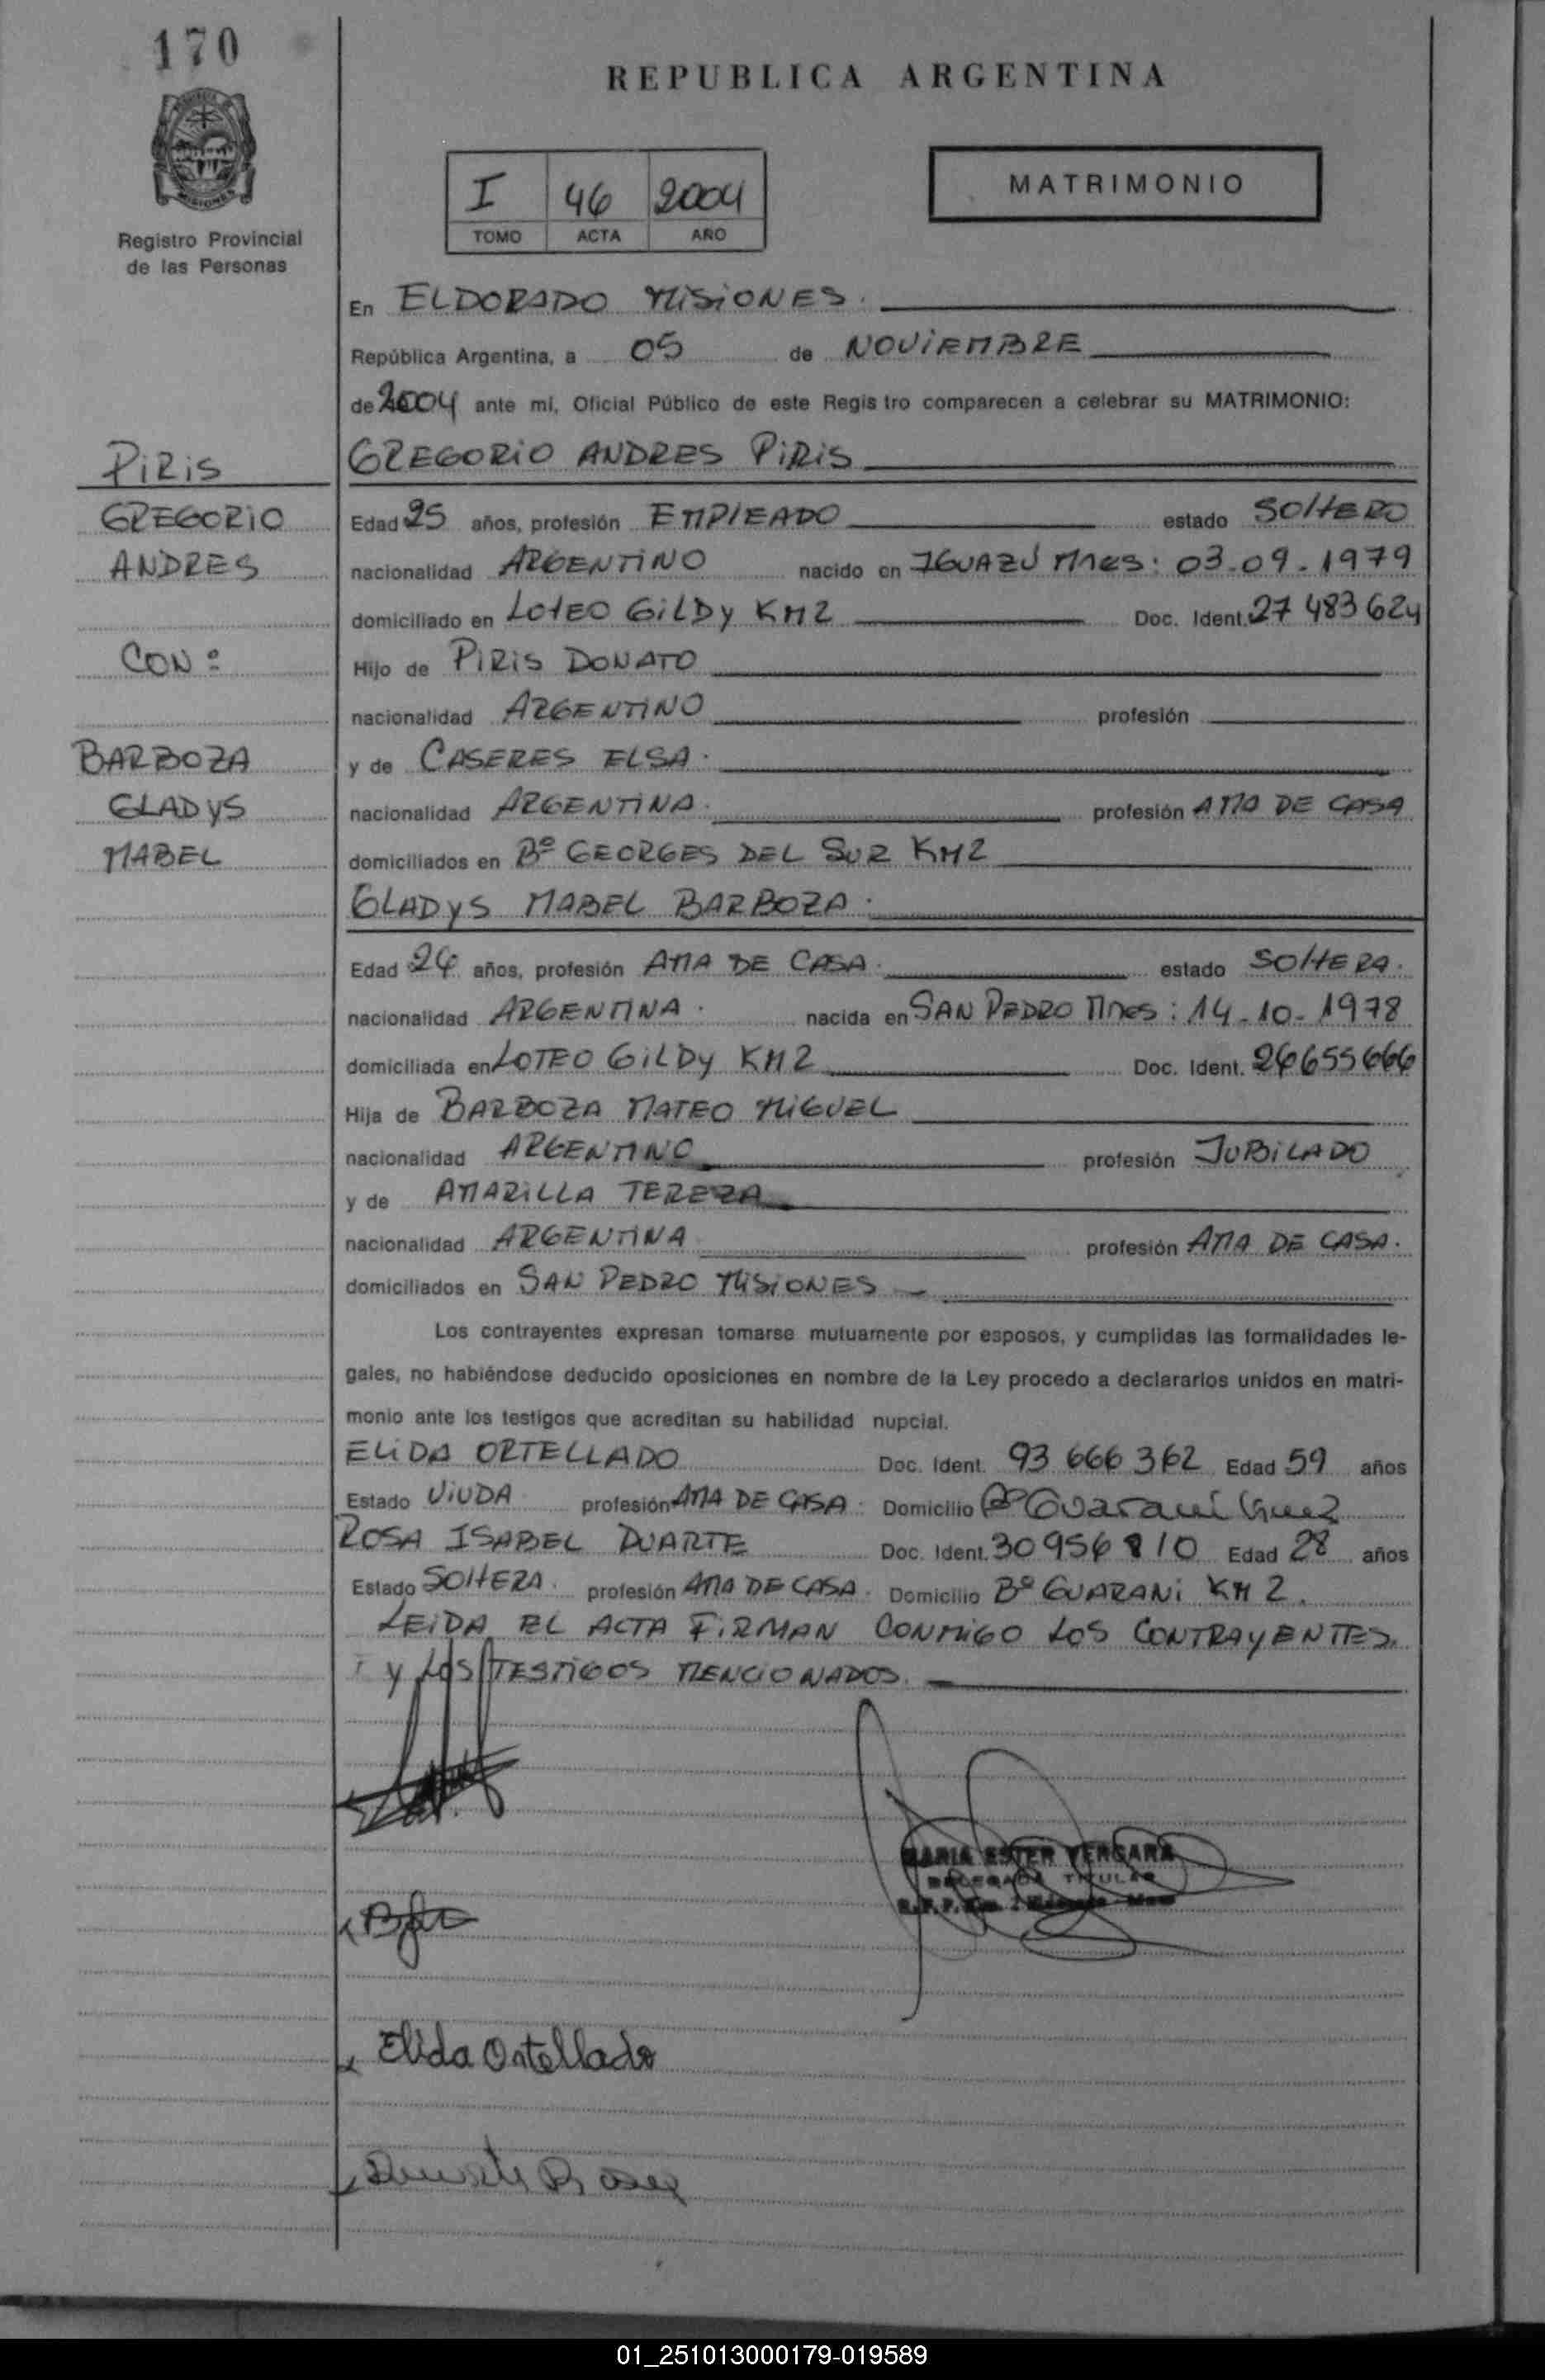 170
REPUBLICA ARGENTINA
MISIONES
Registro Provincial
de las Personas
I 46 2004
TOMO ACTA AÑO
MATRIMONIO
En ELDORADO MISIONES.
República Argentina, a 05 de NOVIEMBRE
de 2004 ante mí, Oficial Público de este Regis tro comparecen a celebrar su MATRIMONIO:
PIRIS
GREGORIO
ANDRES
CON:
BARBOZA
GLADYS
MABEL
GREGORIO ANDRES PIRIS
Edad 25 años, profesión EMPLEADO estado SOLTERO
nacionalidad ARGENTINO nacido en IGUAZÚ Mnes: 03.09.1979
domiciliado en LOTEO GILDY KM2 Doc. Ident. 27 483 624
Hijo de PIRIS DONATO
nacionalidad ARGENTINO profesión
y de CASERES ELSA.
nacionalidad ARGENTINA. profesión AMA DE CASA
domiciliados en Bº GEORGES DEL SUR KM2
GLADYS MABEL BARBOZA.
Edad 26 años, profesión AMA DE CASA. estado SOLTERA.
nacionalidad ARGENTINA. nacida en SAN PEDRO Mnes: 14-10-1978
domiciliada en LOTEO GILDY KM2 Doc. Ident. 26655666
Hija de BARBOZA MATEO MIGUEL
nacionalidad ARGENTINO profesión JUBILADO
y de AMARILLA TEREZA
nacionalidad ARGENTINA profesión AMA DE CASA.
domiciliados en SAN PEDRO MISIONES
Los contrayentes expresan tomarse mutuamente por esposos, y cumplidas las formalidades le-
gales, no habiéndose deducido oposiciones en nombre de la Ley procedo a declararlos unidos en matri-
monio ante los testigos que acreditan su habilidad nupcial.
ELIDA ORTELLADO Doc. Ident. 93 666 362 Edad 59 años
Estado VIUDA profesión AMA DE CASA. Domicilio Bº Guaraní
ROSA ISABEL DUARTE Doc. Ident. 30 956 810 Edad 28 años
Estado SOLTERA. profesión AMA DE CASA. Domicilio Bº GUARANI KM 2.
LEIDA EL ACTA FIRMAN CONMIGO LOS CONTRAYENTES.
y LOS TESTIGOS MENCIONADOS.
MARIA ESTER VERGARA
DELEGADA TITULAR
Elida Ortellado
Duarte Rosa
01_251013000179-019589